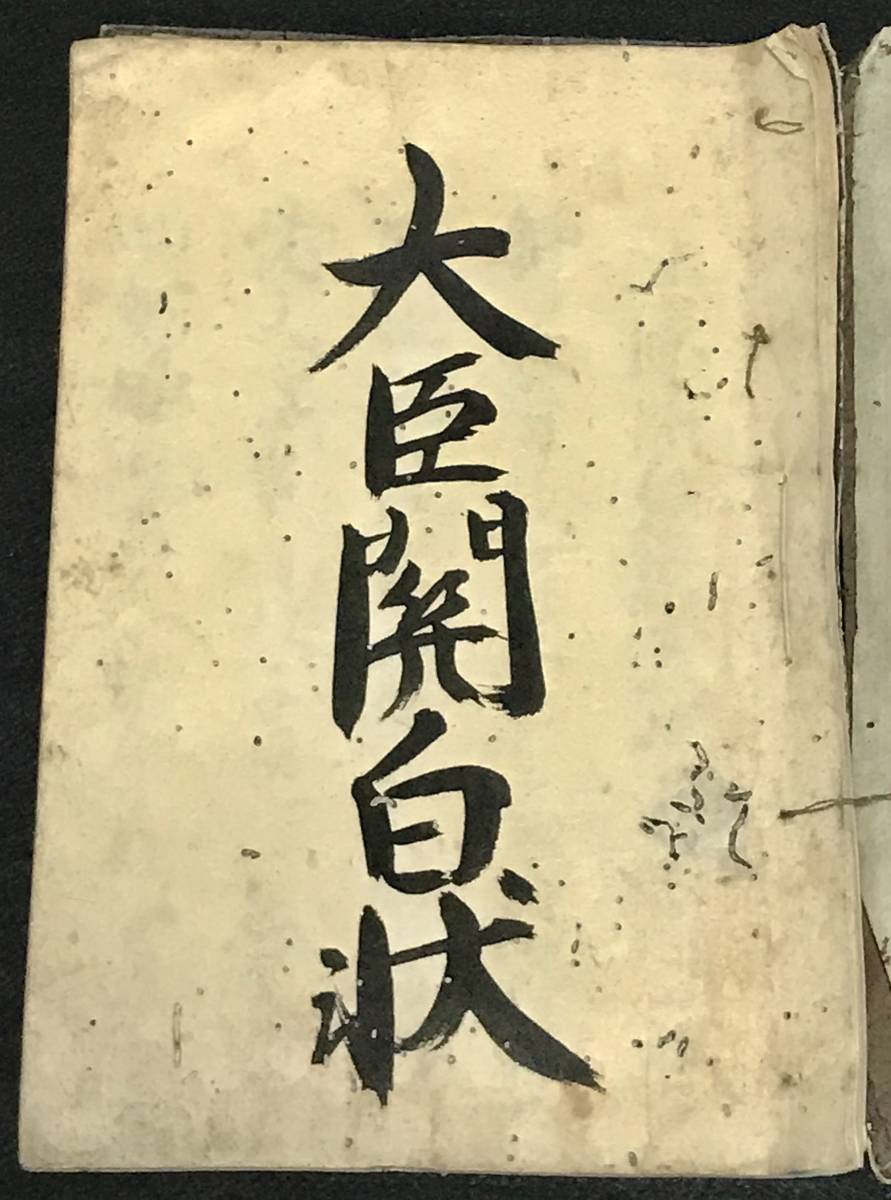 大臣関白状